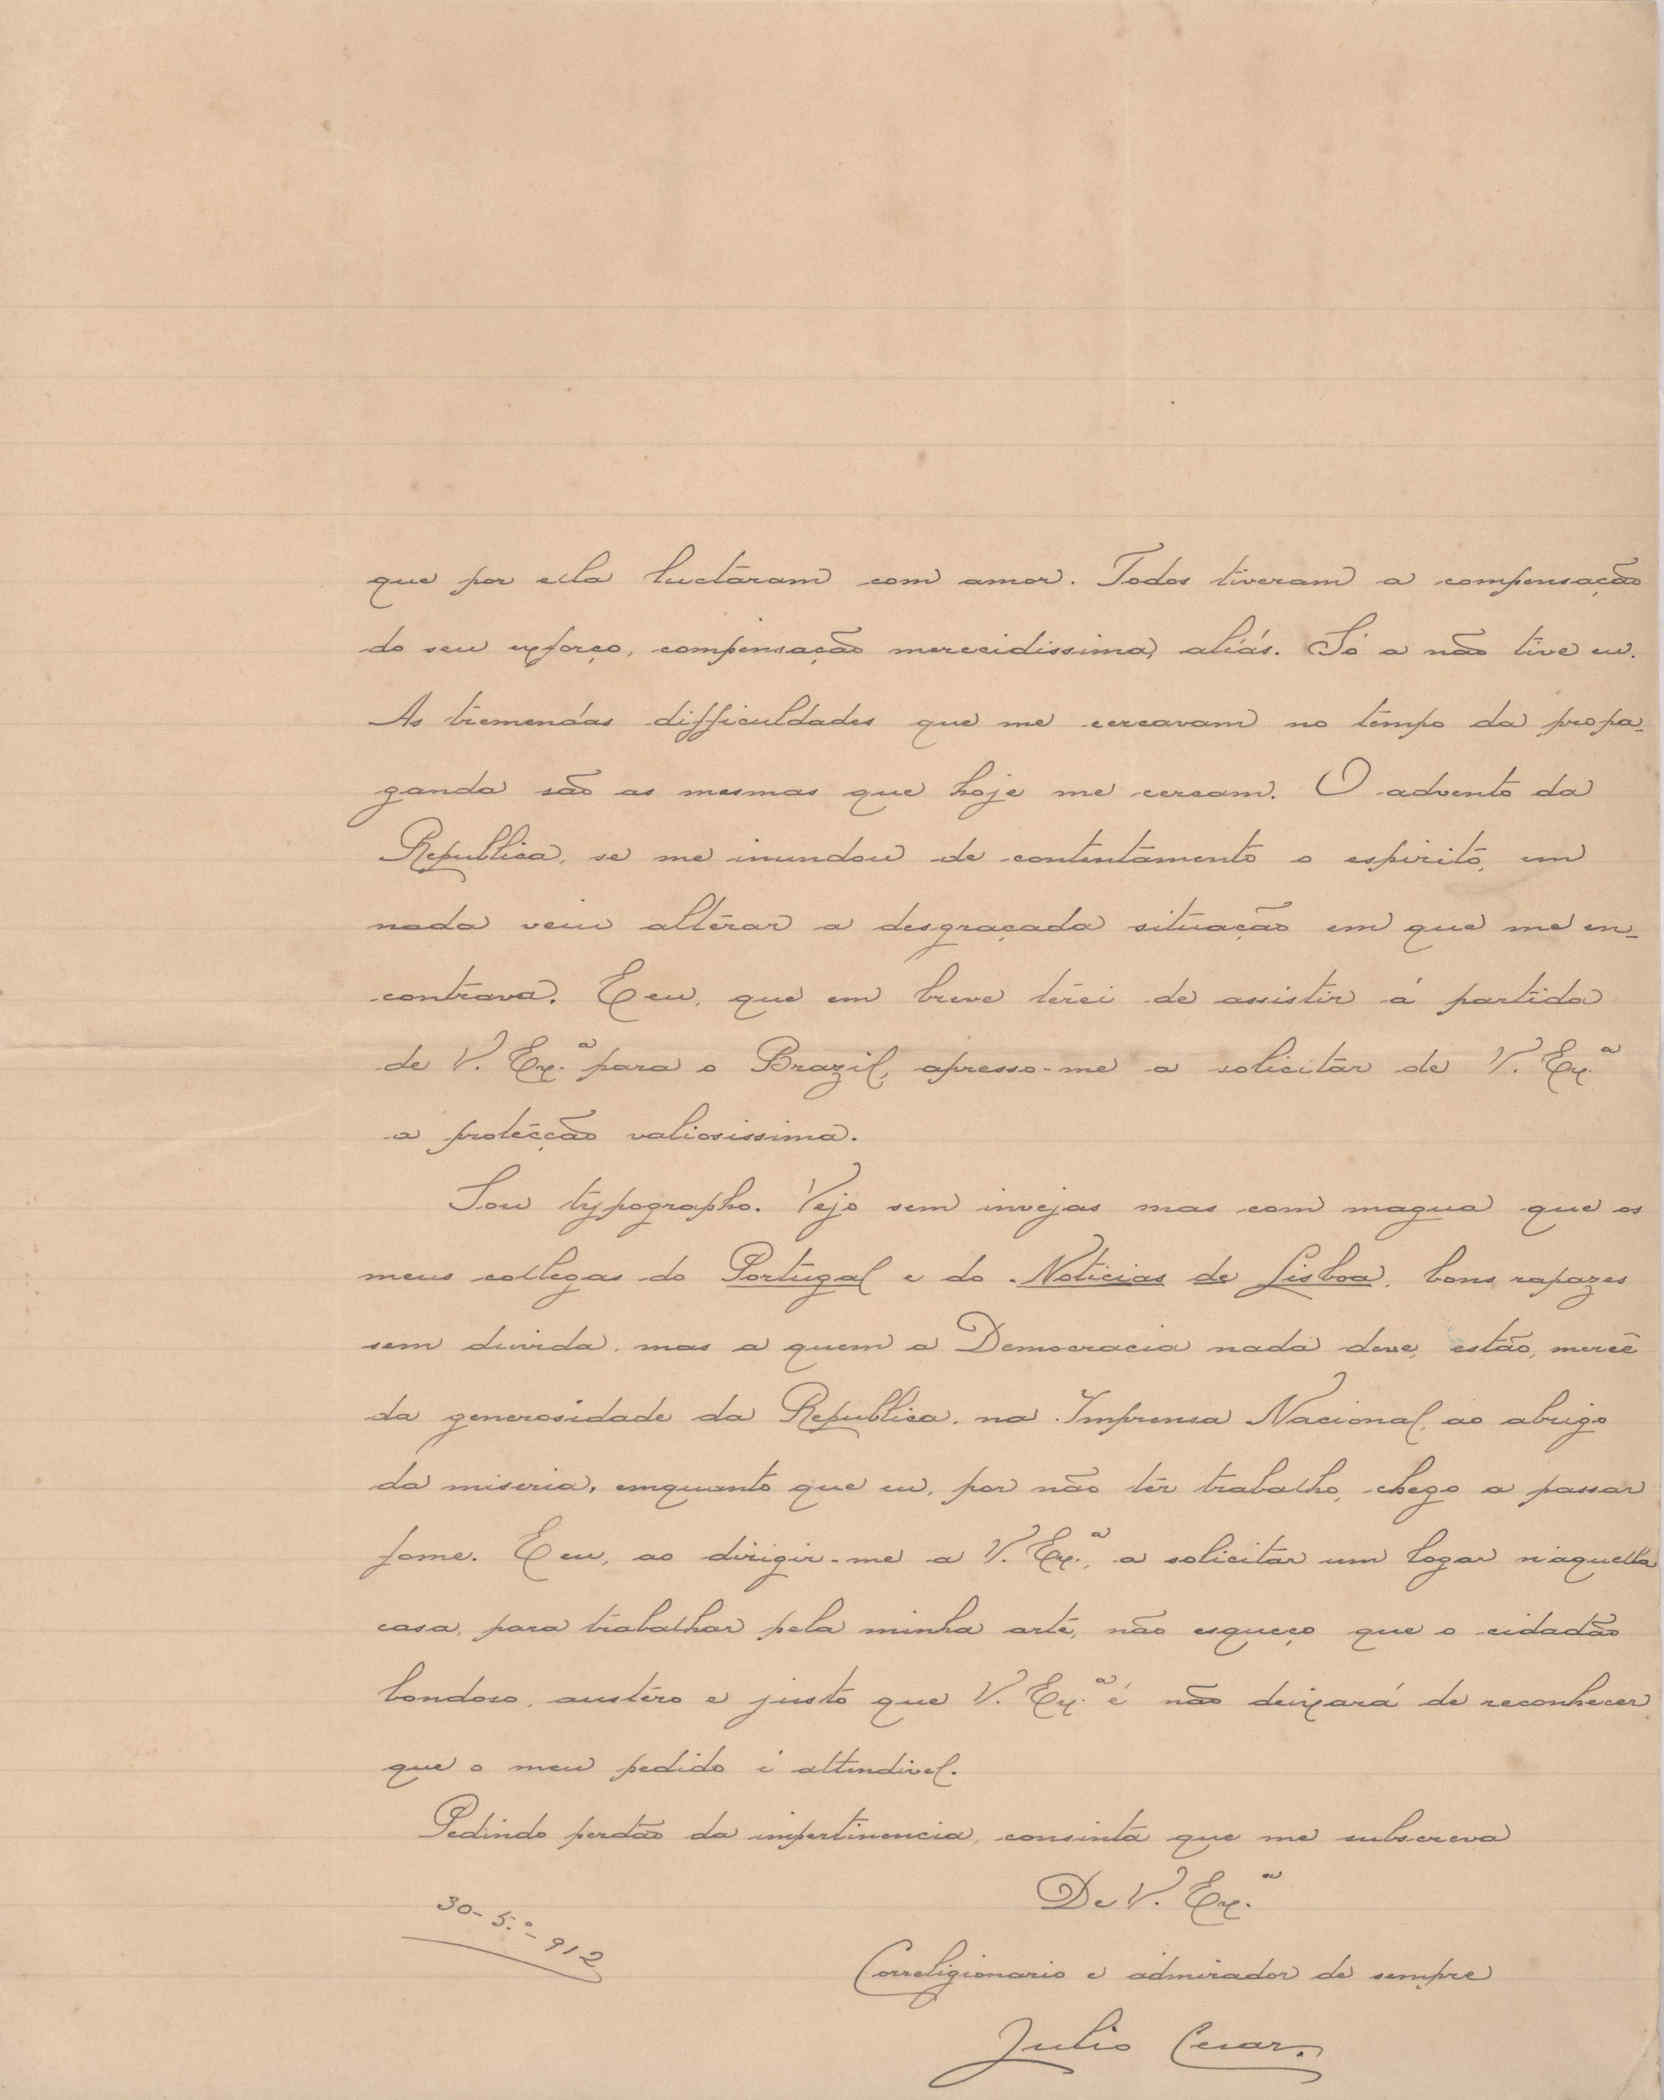 que por ella luctaram com amor. Todos tiveram a compensação
do seu exforço, compensação merecidissima, aliás. Só a não tive eu.
As tremendas difficuldades que me cercavam no tempo da propa-
ganda são as mesmas que hoje me cercam. O advento da
Republica, se me inundou de contentamento o espirito, em
nada veiu alterar a desgraçada situação em que me en-
contrava. E eu, que em breve terei de assistir á partida
de V. Ex.ª para o Brazil, apresso-me a solicitar de V. Ex.ª
a protecção valiosissima.
Sou typographo. Vejo sem invejas mas com magua que os
meus collegas do Portugal e do Noticias de Lisboa, bons rapazes
sem duvida, mas a quem a Democracia nada deve, estão, mercê
da generosidade da Republica, na Imprensa Nacional, ao abrigo
da miseria, emquanto que eu, por não ter trabalho, chego a passar
fome. E eu, ao dirigir-me a V. Ex.ª, a solicitar um logar n'aquella
casa, para trabalhar pela minha arte, não esqueço que o cidadão
bondoso, austero e justo que V. Ex.ª é não deixará de reconhecer
que o meu pedido é attendivel.
Pedindo perdão da impertinencia, consinta que me subscreva
De V. Ex.ª
30-5.º-912
Correligionario e admirador de sempre
Julio Cesar.